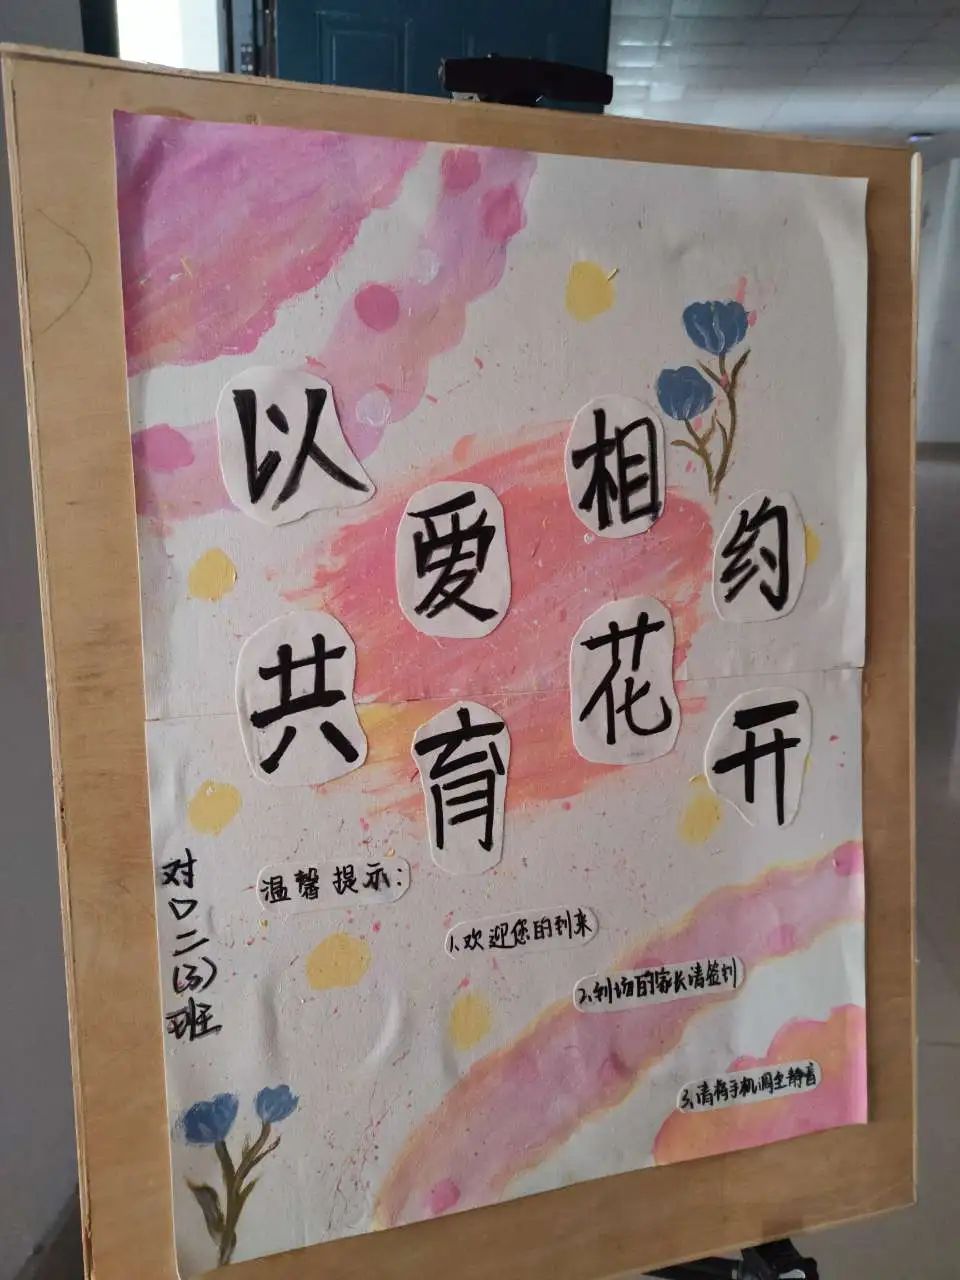 以爱相约
共育花开
对口二(3)班
温馨提示:
1.欢迎您的到来
2.到访的家长请签到
3.请将手机调至静音